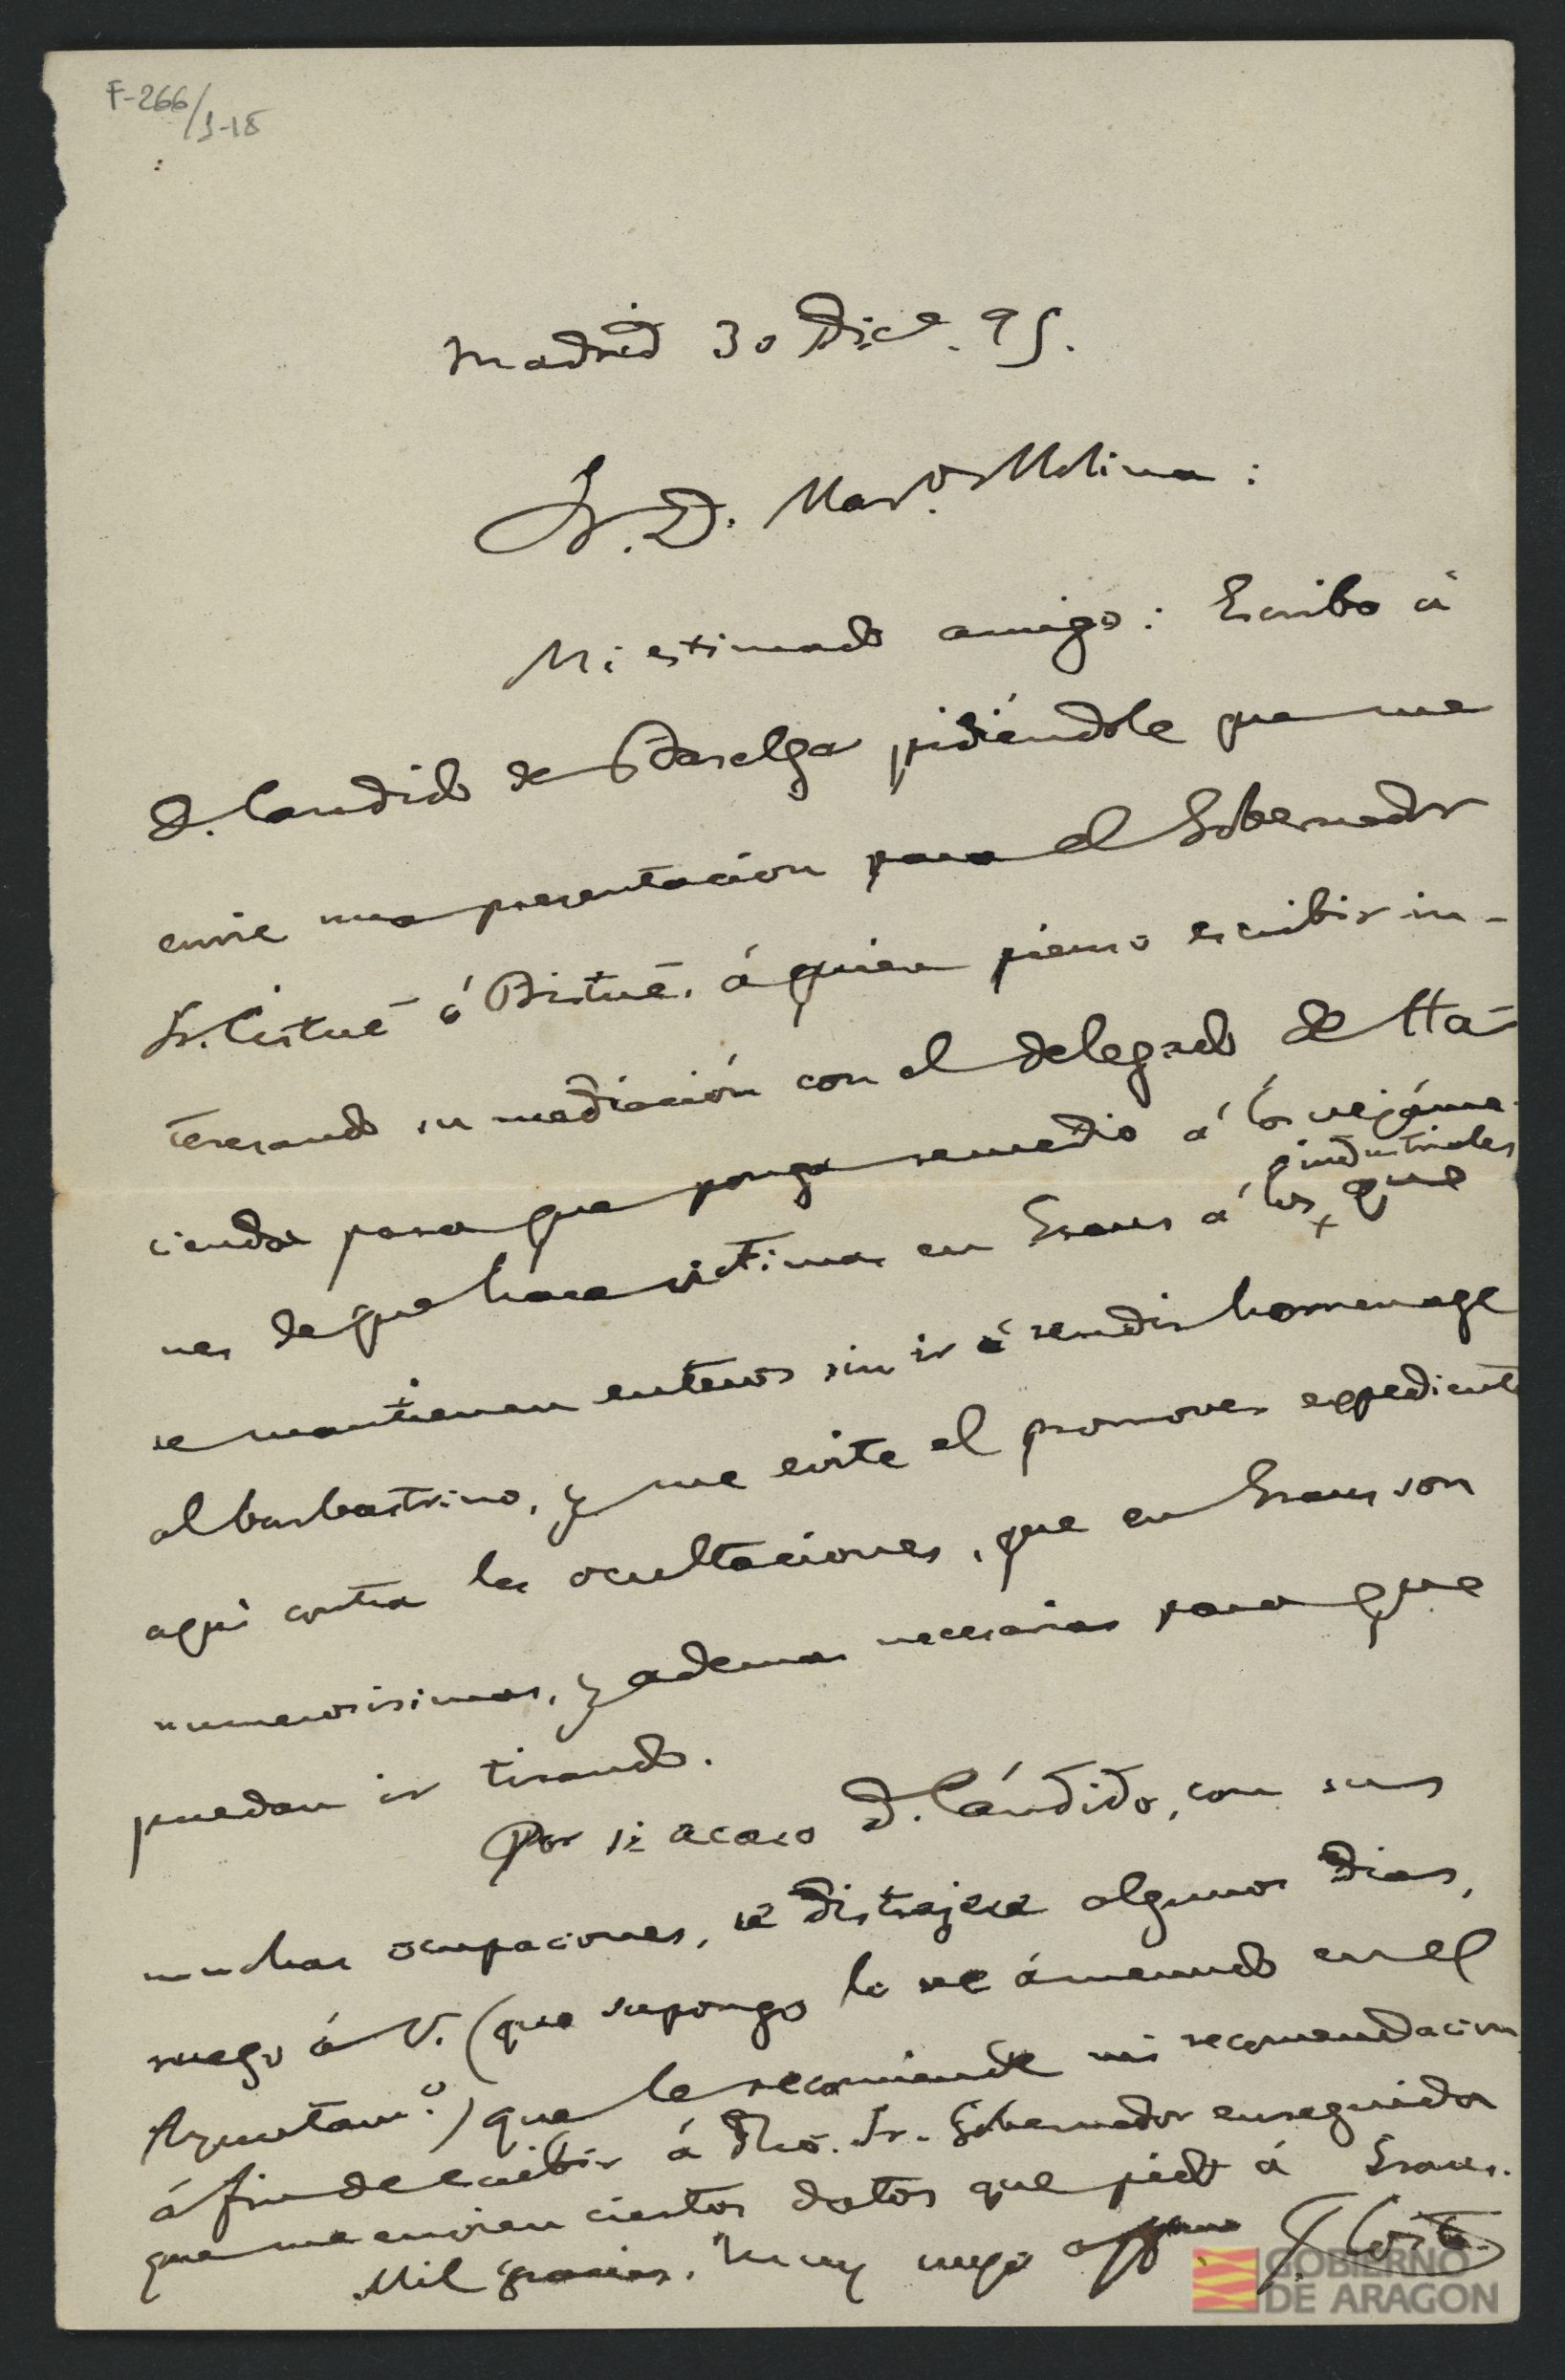 F-266/1-18
Madrid 30 Dice. 95.
Sr. D. Marº. Molina:
Mi estimado amigo: Escribo á
D. Candido de Baselga pidiéndole que me
envie una presentacion para el Gobernador
Sr. Cistué ó Bistué, á quien pienso escribir in-
teresando su mediación con el delegado de Ha-
cienda para que ponga remedio á los vejáme-
industriales
nes de que hace victimas en Graus á los que
se mantienen enteros sin ir á rendir homenage
al barbastrino, y me evite el promover expediente
aqui contra las ocultaciones, que en Graus son
numerosisimas, y ademas necesarias para que
puedan ir tirando.
Por si acaso D. Cándido, con sus
muchas ocupaciones, se distrajese algunos dias,
ruego á V. (que supongo le ve á menudo en el
Ayuntamº.) que le recomiende mi recomendacion
á fin de escribir á dho. Sr. Gobernador enseguida
que me envien ciertos datos que pido á Graus.
Mil gracias. Muy suyo affmo J Costa
GOBIERNO
DE ARAGON